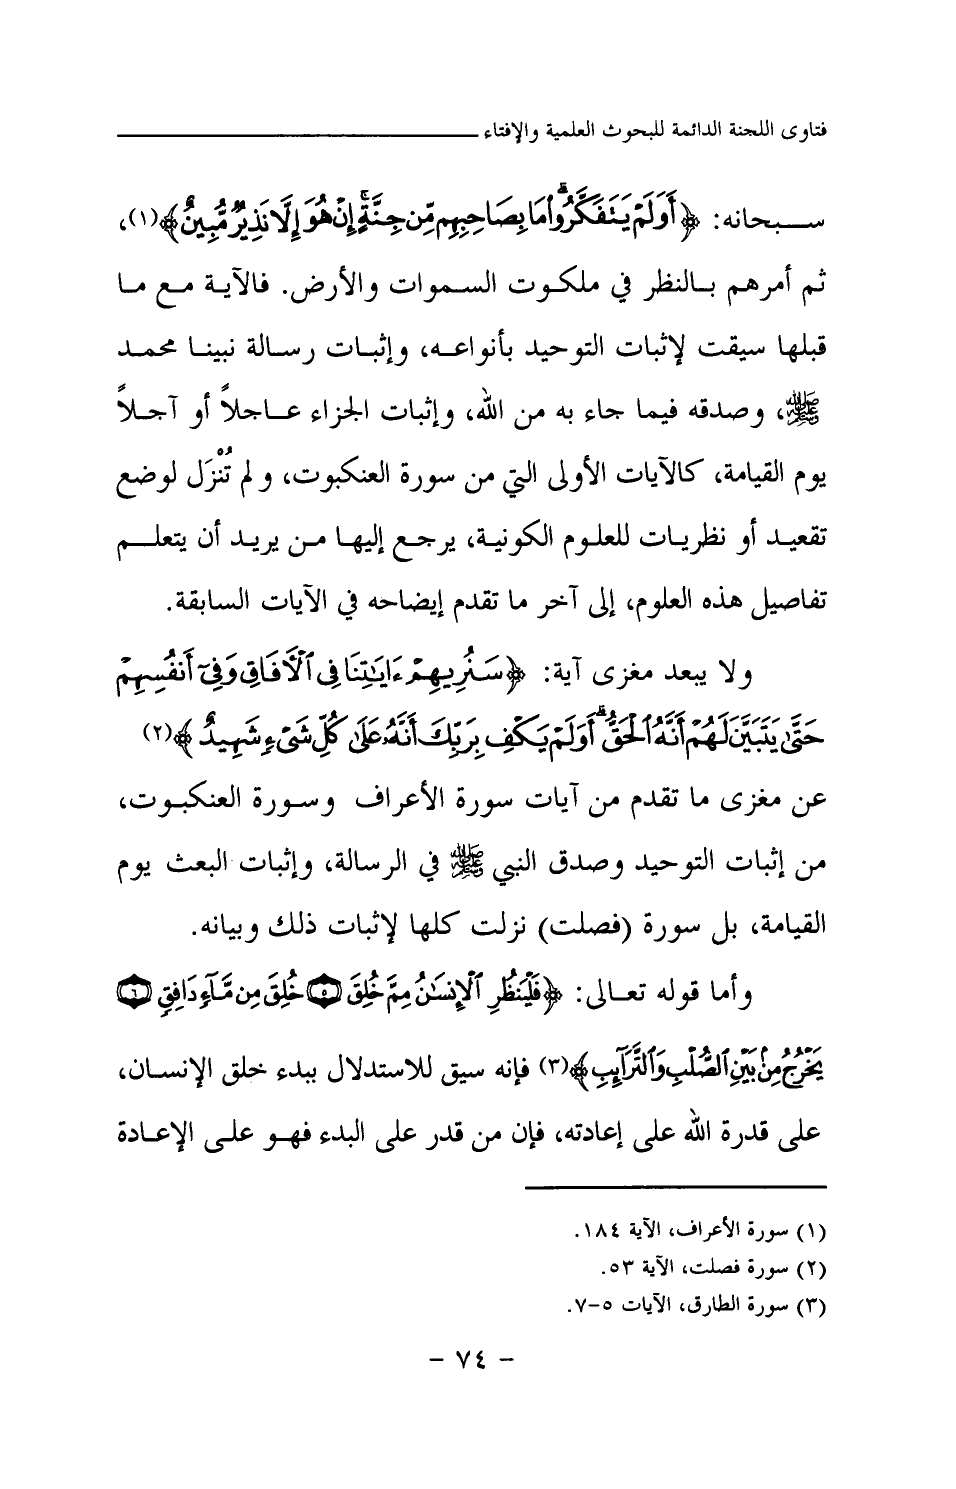 فتاوى اللجنة الدائمة للبحوث العلمية والإفتاء
سبحانه: ﴿أَوَلَمْ يَتَفَكَّرُوا۟ ۗ مَا بِصَاحِبِهِم مِّن جِنَّةٍ ۚ إِنْ هُوَ إِلَّا نَذِيرٌ مُّبِينٌ﴾(١)،
ثم أمرهم بالنظر في ملكوت السموات والأرض. فالآية مع ما
قبلها سيقت لإثبات التوحيد بأنواعه، وإثبات رسالة نبينا محمد
ﷺ، وصدقه فيما جاء به من الله، وإثبات الجزاء عاجلاً أو آجلاً
يوم القيامة، كالآيات الأولى التي من سورة العنكبوت، ولم تُنْزَل لوضع
تقعيد أو نظريات للعلوم الكونية، يرجع إليها من يريد أن يتعلم
تفاصيل هذه العلوم، إلى آخر ما تقدم إيضاحه في الآيات السابقة.
ولا يبعد مغزى آية: ﴿سَنُرِيهِمْ ءَايَٰتِنَا فِى ٱلْءَافَاقِ وَفِىٓ أَنفُسِهِمْ
حَتَّىٰ يَتَبَيَّنَ لَهُمْ أَنَّهُ ٱلْحَقُّ ۗ أَوَلَمْ يَكْفِ بِرَبِّكَ أَنَّهُۥ عَلَىٰ كُلِّ شَىْءٍ شَهِيدٌ﴾(٢)
عن مغزى ما تقدم من آيات سورة الأعراف وسورة العنكبوت،
من إثبات التوحيد وصدق النبي ﷺ في الرسالة، وإثبات البعث يوم
القيامة، بل سورة (فصلت) نزلت كلها لإثبات ذلك وبيانه.
وأما قوله تعالى: ﴿فَلْيَنظُرِ ٱلْإِنسَٰنُ مِمَّ خُلِقَ ۝٥ خُلِقَ مِن مَّآءٍ دَافِقٍ ۝٦
يَخْرُجُ مِنۢ بَيْنِ ٱلصُّلْبِ وَٱلتَّرَآئِبِ﴾(٣) فإنه سيق للاستدلال ببدء خلق الإنسان،
على قدرة الله على إعادته، فإن من قدر على البدء فهو على الإعادة
(١) سورة الأعراف، الآية ١٨٤.
(٢) سورة فصلت، الآية ٥٣.
(٣) سورة الطارق، الآيات ٥-٧.
- ٧٤ -